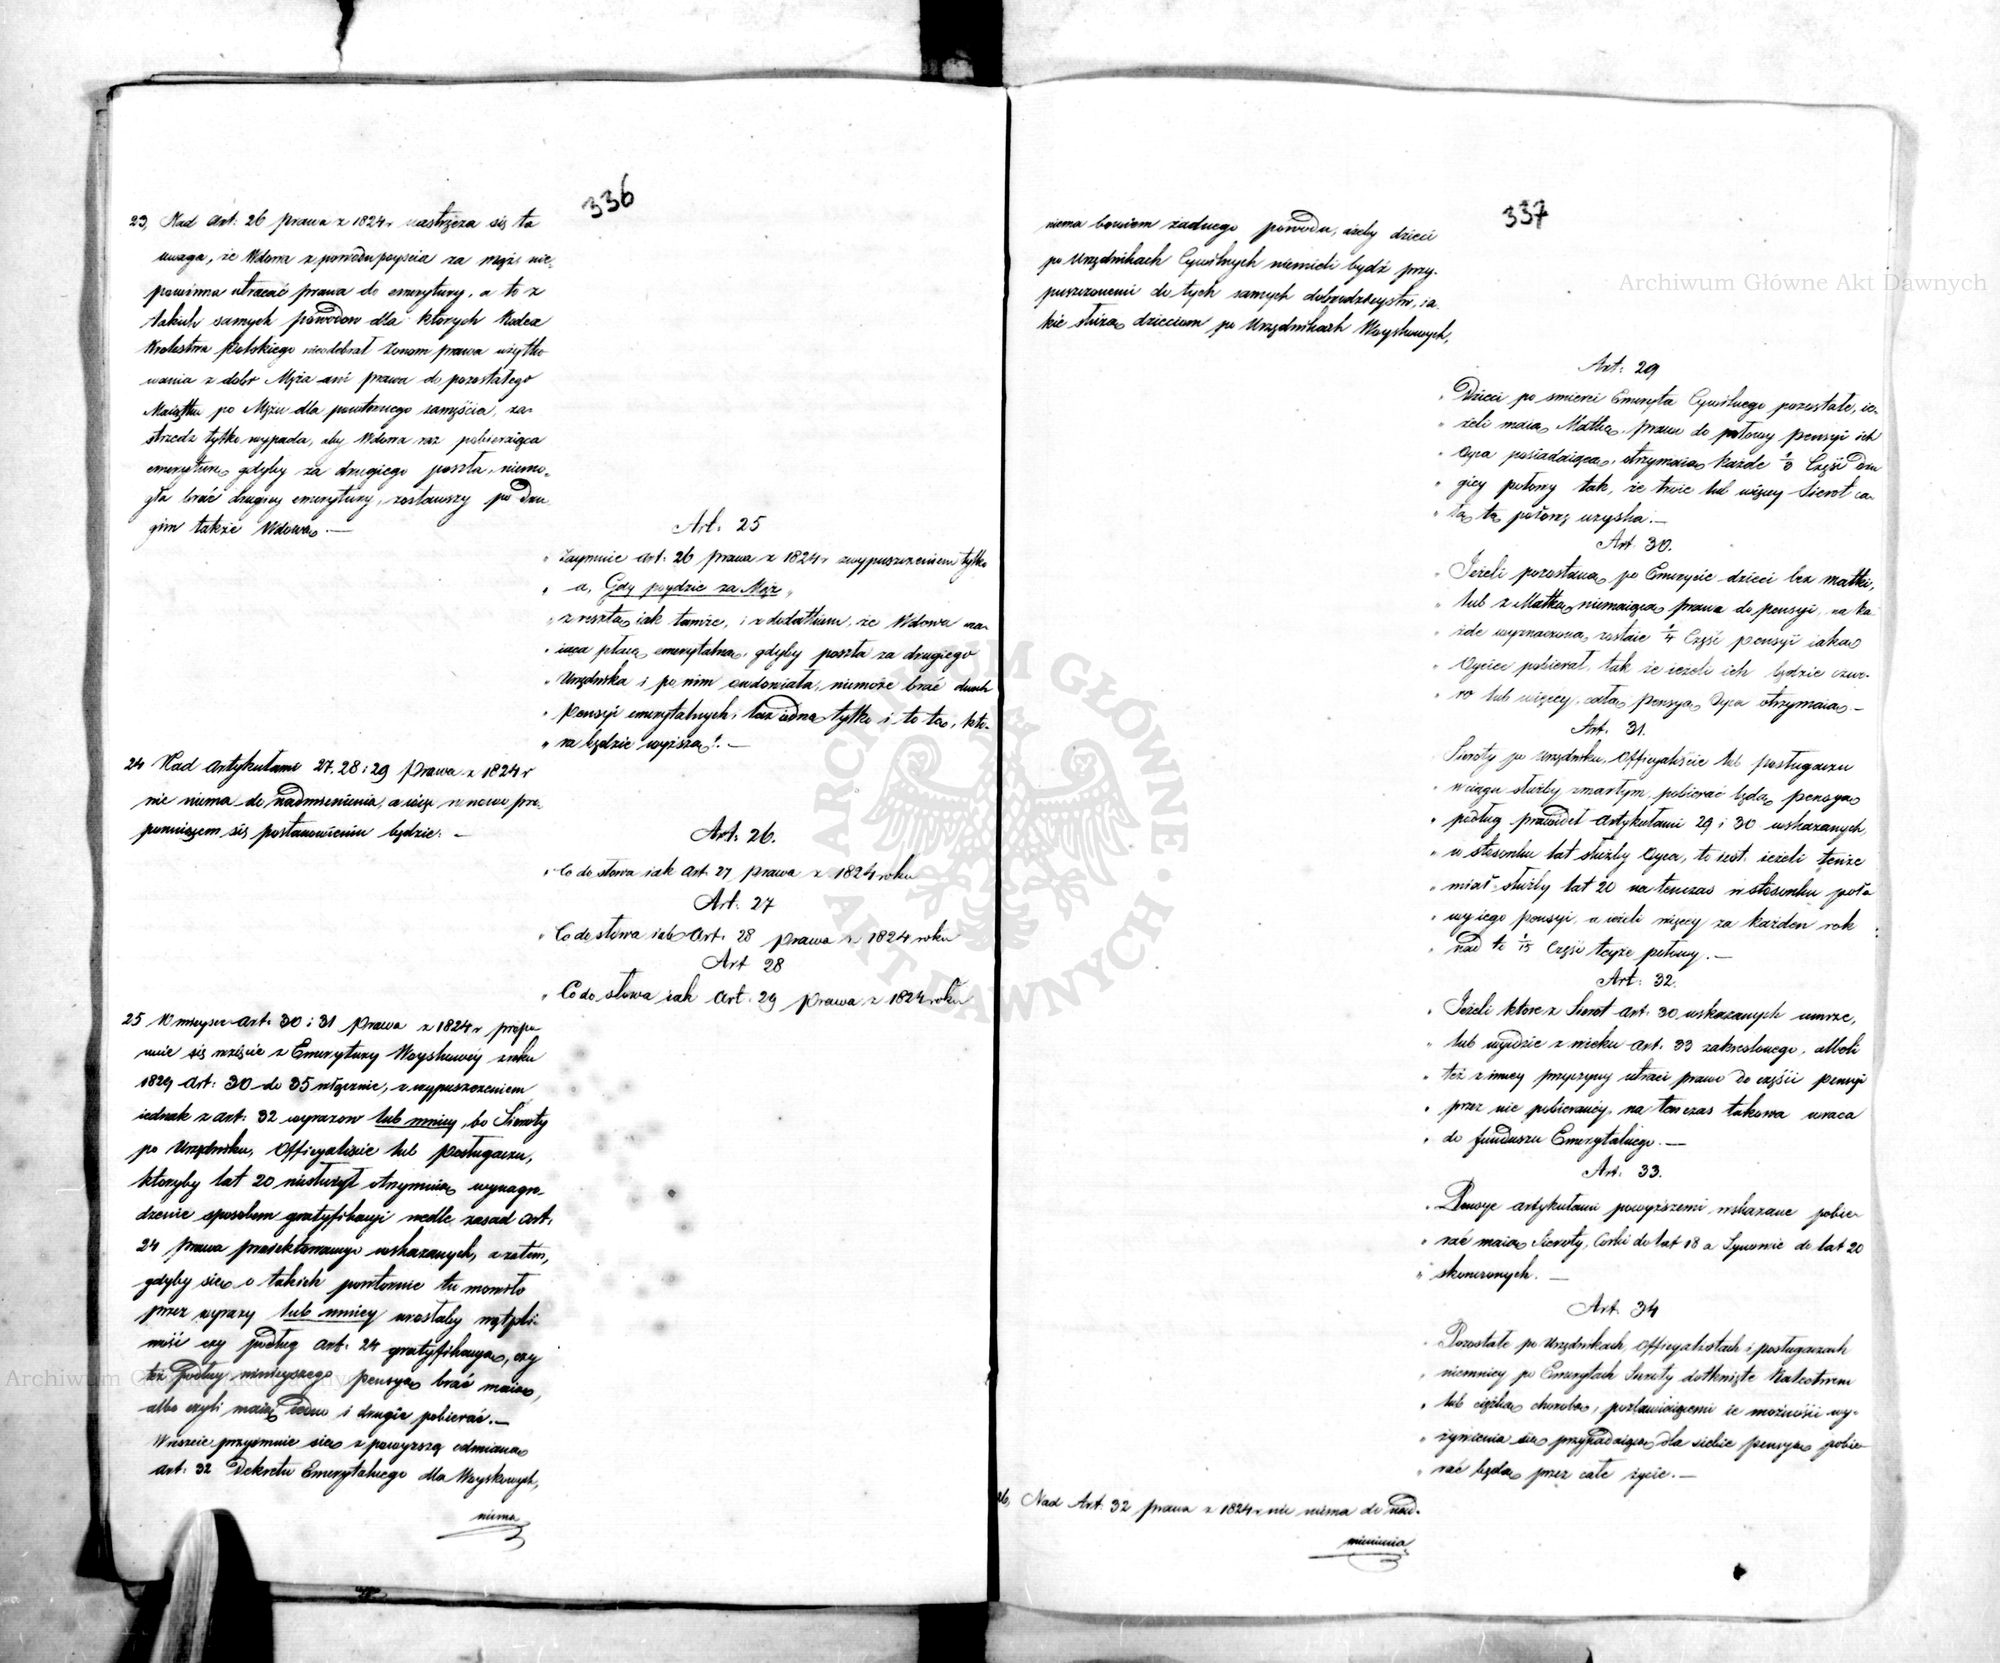 336
23, Nad Art: 26 prawa z 1824 r. nastręcza się ta
uwaga, że Wdowa z powodu poyścia za mąż nie-
powinna utracać prawa do emerytury, a to z
takich samych powodow dla których Kodex
Krolestwa Polskiego nieodebrał żonom prawa użytko
wania z dobr Męża ani prawa do pozostałego
Maiątku po Mężu dla powtornego zamęścia, za-
strzedz tylko wypada, aby Wdowa raz pobieraiąca
emeryturę gdyby za drugiego poszła, niemo-
gła brać drugiey emerytury, zostawszy po dru
gim także Wdową. —
Art: 25
„ Zaymuie Art: 26 prawa z 1824 r. z wypuszczeniem tylko
„ a, Gdy poydzie za Mąż „
„ z resztą iak tamże, i z dodatkiem, że Wdowa ma-
„ iąca płacę emerytalną, gdyby poszła za drugiego
„ Urzędnika i po nim owdowiała, niemoże brać dwóch
„ Pensyi emerytalnych, lecz iedną tylko i to tę, któ-
„ ra będzie wyższą. —
24 Nad Artykułami 27. 28 i 29 Prawa z 1824 r
nic niema do nadmienienia, a więc w nowo pro-
ponuiącem się postanowieniu będzie: —
Art: 26.
„ Co do słowa iak Art. 27 prawa z 1824 roku
Art: 27
„ Co do słowa iak Art: 28 prawa z 1824 roku
Art 28
„ Co do słowa iak Art: 29 prawa z 1824 roku
25 W mieysce Art: 30 i 31 Prawa z 1824 r propo
nuie się wziąście z Emerytury Woyskowéy z roku
1829 Art: 30 do 35 włącznie, z wypuszczeniem
iednak z Art: 32 wyrazow lub mniey, bo Sieroty
po Urzędniku, Officyaliście lub posługaczu,
któryby lat 20 niesłużył otrzymuią wynagro-
dzenie sposobem gratyfikacyi wedle zasad Art:
24 prawa proiektowanego wskazanych, a zatem,
gdyby się o takich powtornie tu mowiło
przez wyrazy lub mniey urosłaby wątpli-
wość czy podług Art: 24 gratyfikacyą, czy
też podług ninieyszego pensyą brać maią,
albo czyli maią iedno i drugie pobierać. —
Wreszcie przyimuie się z powyższą odmianą
Art: 32 Dekretu Emerytalnego dla Woyskowych,
niema
337
niema bowiem żadnego powodu, ażeby dzieci
po Urzędnikach Cywilnych niemieli bydź przy-
puszczonemi do tych samych dobrodzieystw, ia-
kie służą dzieciom po Urzędnikach Woyskowych,
Art: 29
„ Dzieci po smierci Emeryta Cywilnego pozostałe, ie-
„ żeli maią Matkę, prawo do połowy pensyi ich
„ Oyca posiadaiącą, otrzymaią każde ⅓ Część dru
„ giey połowy tak, że troie lub więcey Sierot ca-
„ łą tę połowę uzyska. —
Art 30.
„ Jeżeli pozostaną po Emerycie dzieci bez matki,
„ lub z Matką niemaiącą prawa do pensyi, na ka
„ żde wyznaczona zostaie ¼ Część pensyi iaką
„ Oyciec pobierał, tak że ieżeli ich będzie czwo-
„ ro lub więcey, całą pensyą Oyca otrzymaią —
Art: 31.
Sieroty po Urzędniku, Officyaliście lub posługaczu
„ w ciągu służby zmarłym, pobierać będą pensyą
„ podług prawideł Artykułami 29 i 30 wskazanych,
„ w stosunku lat służby Oyca, to iest: ieżeli tenże
„ miał służby lat 20 na tenczas w stosunku poło
„ wy iego pensyi, a ieżeli więcey za każden rok
„ nad to 1/15 Część teyże połowy. —
Art: 32.
„ Jeżeli które z Sierot Art: 30 wskazanych umrze,
„ lub wyidzie z wieku Art: 33 zakreslonego, alboli
„ też z inney przyczyny utraci prawo do części pensyi
„ przez nie pobieraney, na tenczas takowa wraca
„ do funduszu Emerytalnego. —
Art: 33.
„ Pensye Artykułami powyższemi wskazane pobie-
„ rać maią Sieroty, Corki do lat 18 a Synowie do lat 20
„ skonczonych. —
Art. 34
„ Pozostałe po Urzędnikach, Officyalistach i posługaczach
„ niemniey po Emerytach Sieroty dotknięte kalectwem
„ lub ciężką chorobą, pozbawiaiącemi ie możności wy-
„ żywienia się przypadaiącą dla siebie pensyą pobie-
„ rać będą przez całe życie. —
26, Nad Art: 32 prawa z 1824 r. nic niema do nad-
mienienia
Archiwum Główne Akt Dawnych
Archiwum Główne Akt Dawnych
ARCHIWUM GŁÓWNE AKT DAWNYCH